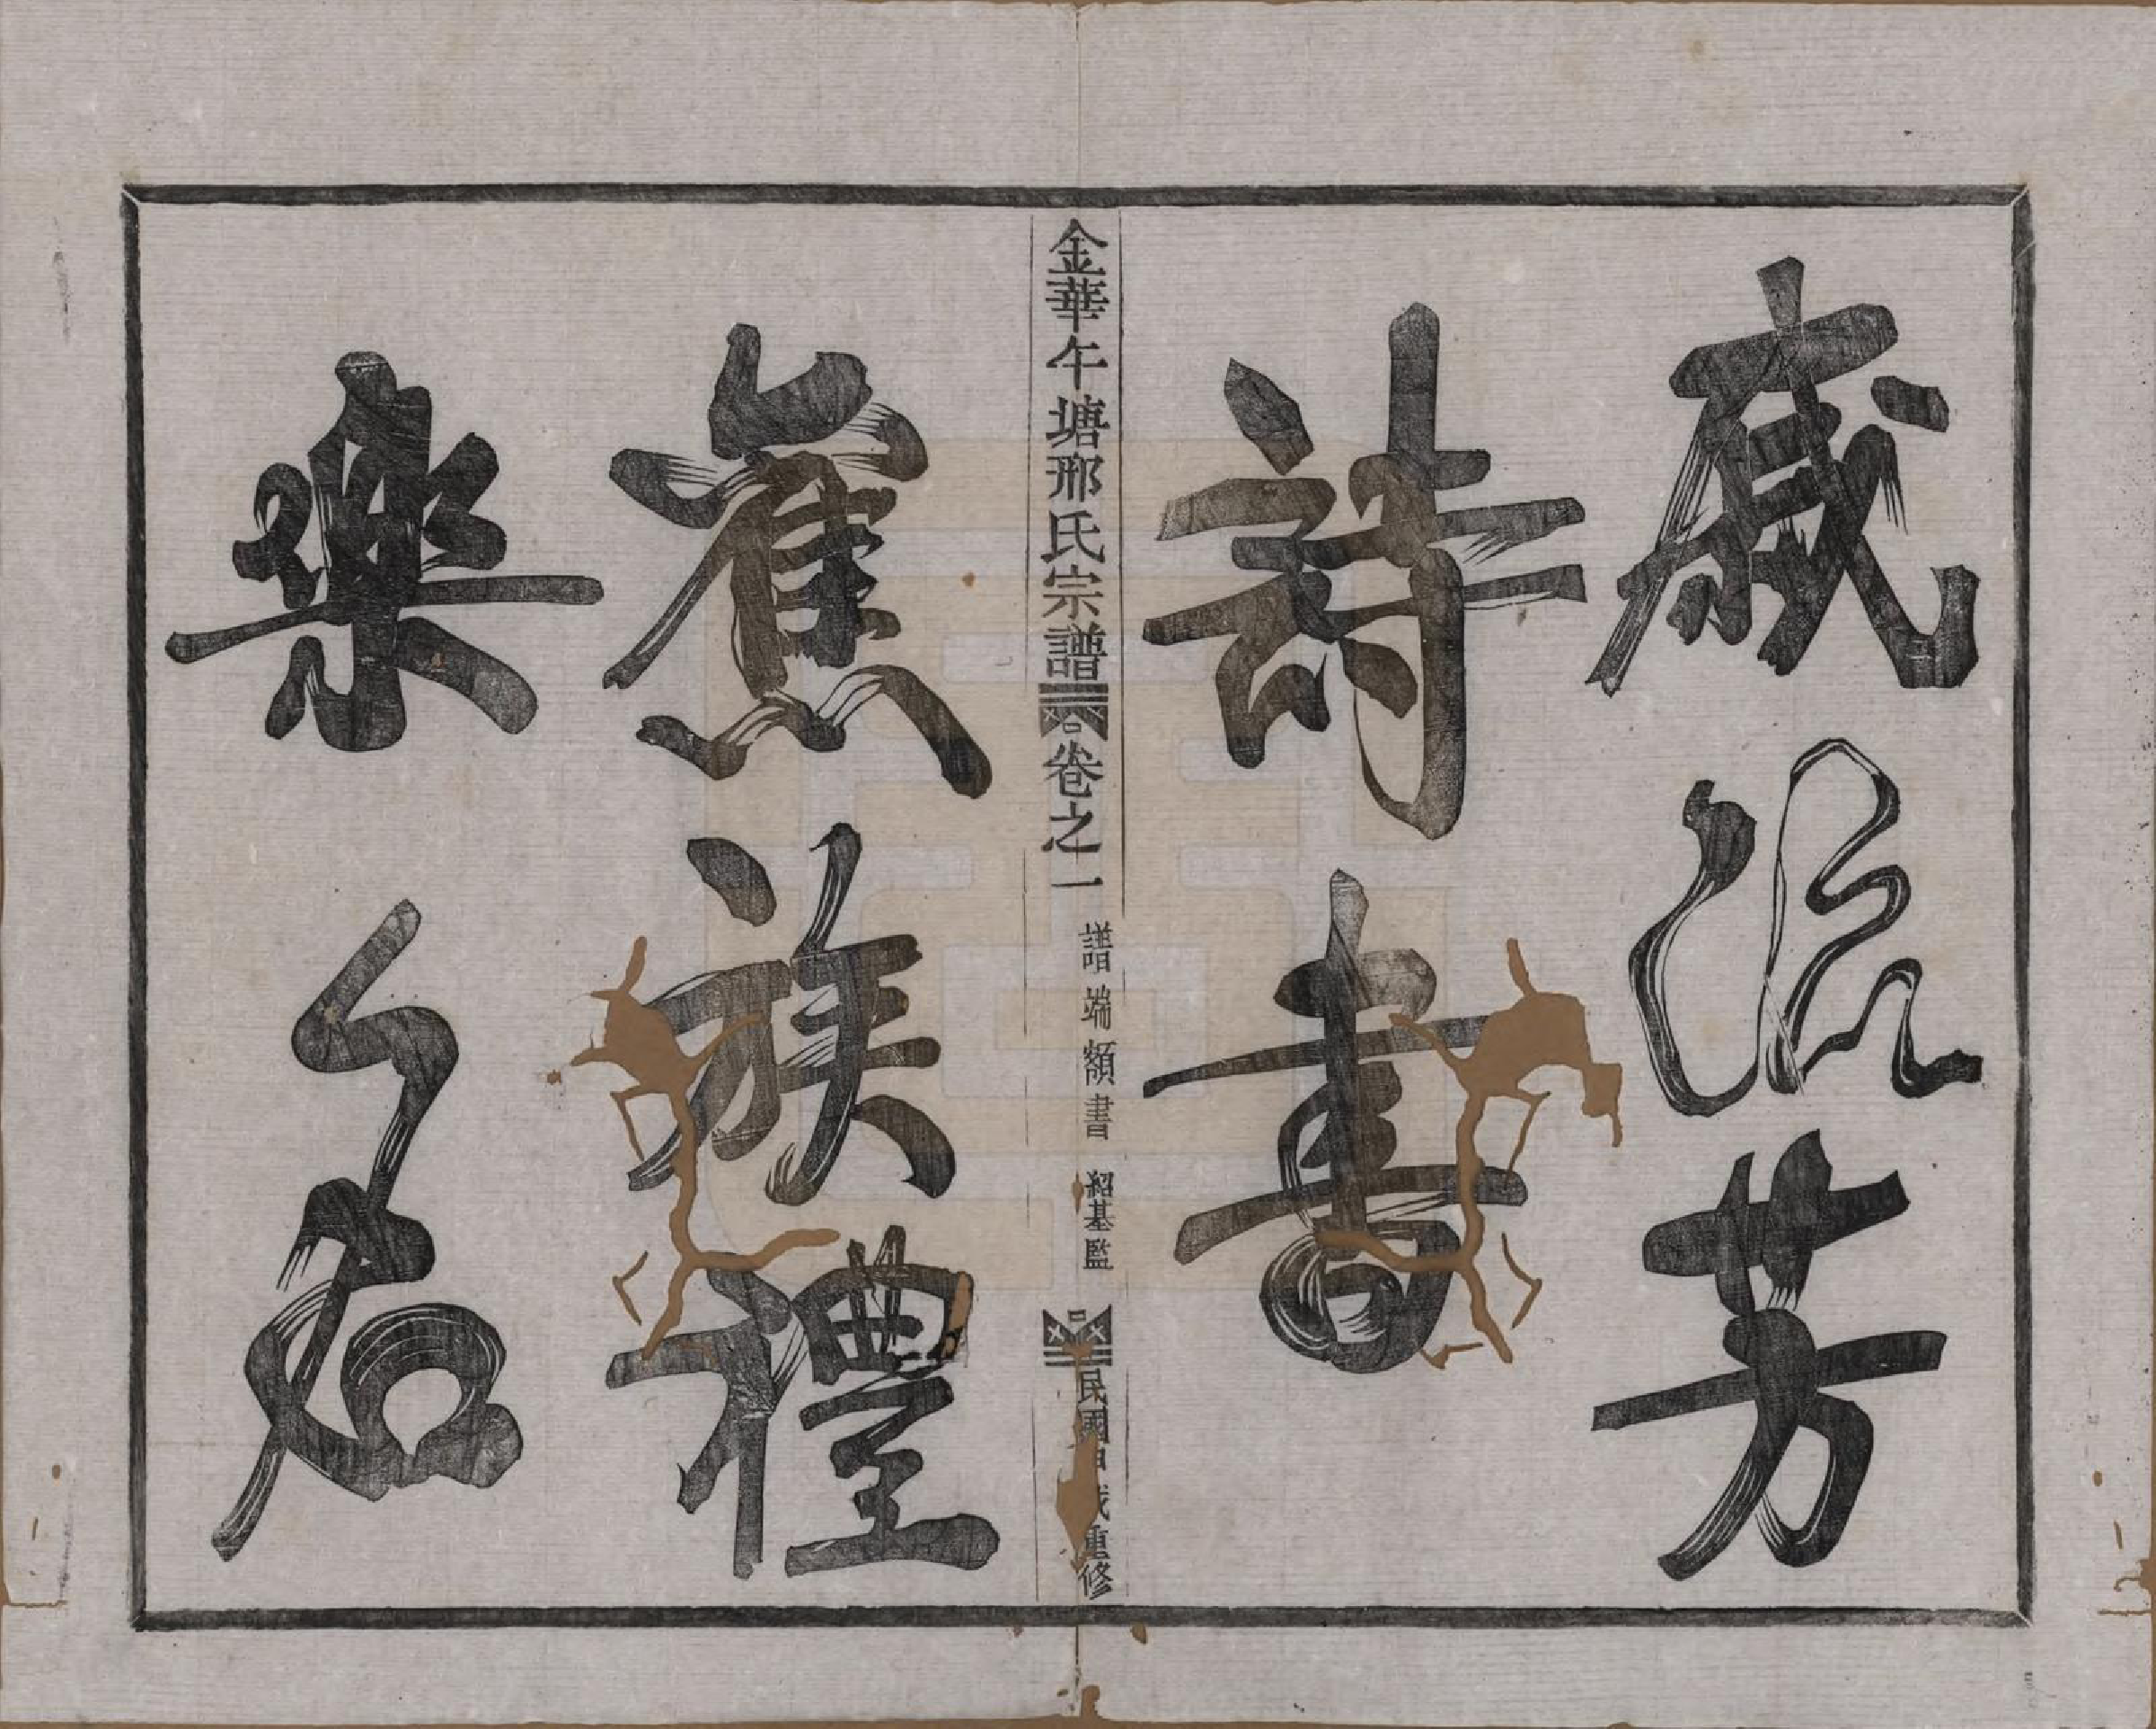 流芳
詩書
金華午塘邢氏宗譜
卷之一
譜端額書
紹基監
民國甲戌重修
舊族禮
樂名